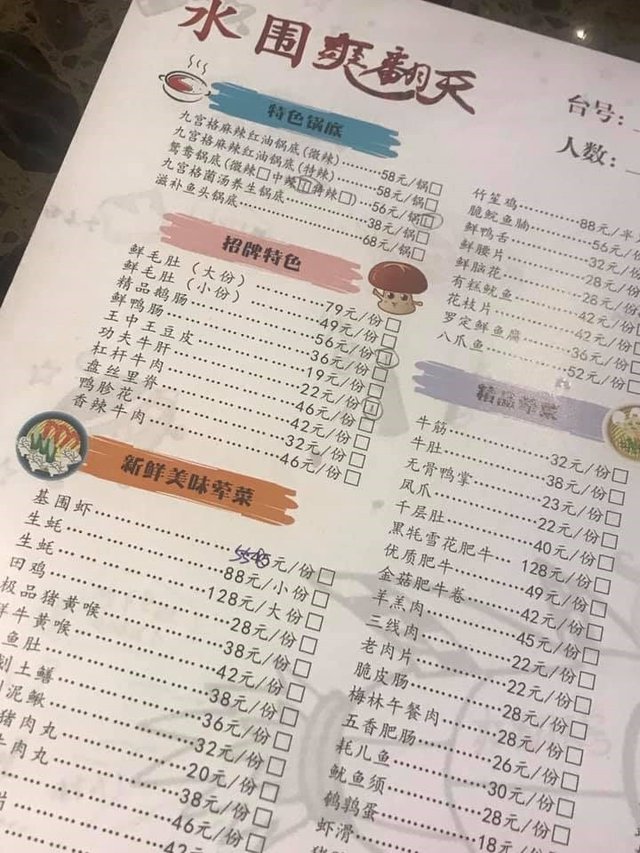 水围爽翻天
台号:
人数:
特色锅底
九宫格麻辣红油锅底(微辣)……58元/锅□
九宫格麻辣红油锅底(特辣)……58元/锅□
鸳鸯锅底(微辣□中辣□特辣□)……56元/锅□
九宫格菌汤养生锅底……38元/锅□
滋补鱼头锅底……68元/锅□
招牌特色
鲜毛肚(大份)……79元/份□
鲜毛肚(小份)……49元/份□
精品鹅肠……56元/份□
鲜鸭肠……36元/份□
王中王豆皮……19元/份□
功夫牛肝……22元/份□
杠杆牛肉……46元/份□
盘丝里脊……42元/份□
鸭胗花……32元/份□
香辣牛肉……46元/份□
新鲜美味荤菜
基围虾……元/份□
生蚝……88元/小份□
生蚝……128元/大份□
田鸡……28元/份□
极品猪黄喉……38元/份□
鲜牛黄喉……42元/份□
鱼肚……38元/份□
土鳝……36元/份□
泥鳅……32元/份□
猪肉丸……20元/份□
牛肉丸……38元/份□
46元/份□
竹笙鸡……88元/半
脆鲩鱼腩……56元/份
鲜鸭舌……32元/份□
鲜腰片……28元/份□
鲜脑花……28元/份□
有糕鱿鱼……42元/份□
花枝片……42元/份□
罗定鲜鱼腐……36元/份□
八爪鱼……52元/份□
精品荤菜
牛筋……32元/份□
牛肚……38元/份□
无骨鸭掌……23元/份□
凤爪……22元/份□
千层肚……40元/份□
黑牦雪花肥牛……128元/份□
优质肥牛……49元/份□
金菇肥牛卷……42元/份□
羊羔肉……45元/份□
三线肉……22元/份□
老肉片……22元/份□
脆皮肠……28元/份□
梅林午餐肉……28元/份□
五香肥肠……26元/份□
耗儿鱼……30元/份□
鱿鱼须……28元/份□
鹌鹑蛋……18元/份□
虾滑